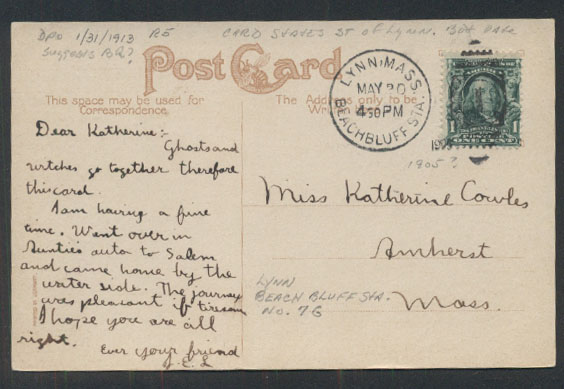 DPO 1/31/1913 R5 CARD STATES ST of Lynn.
Suggests B2?
Post Card
This space may be used for
Correspondence.
The Address only to be
LYNN, MASS.
MAY 20
4-30 PM
BEACHBLUFF STA.
1905?
1
Dear Katherine:-
Ghosts and
witches go together therefore
this card.
I am having a fine
time. Went over in
Aunties auto to Salem
and came home by the
water side. The journey
was pleasant if tiresome
I hope you are all
right.
Ever your friend
J.E.L
Miss Katherine Cowles
Amherst
Mass.
LYNN
BEACH BLUFF STA.
NO. 7-G